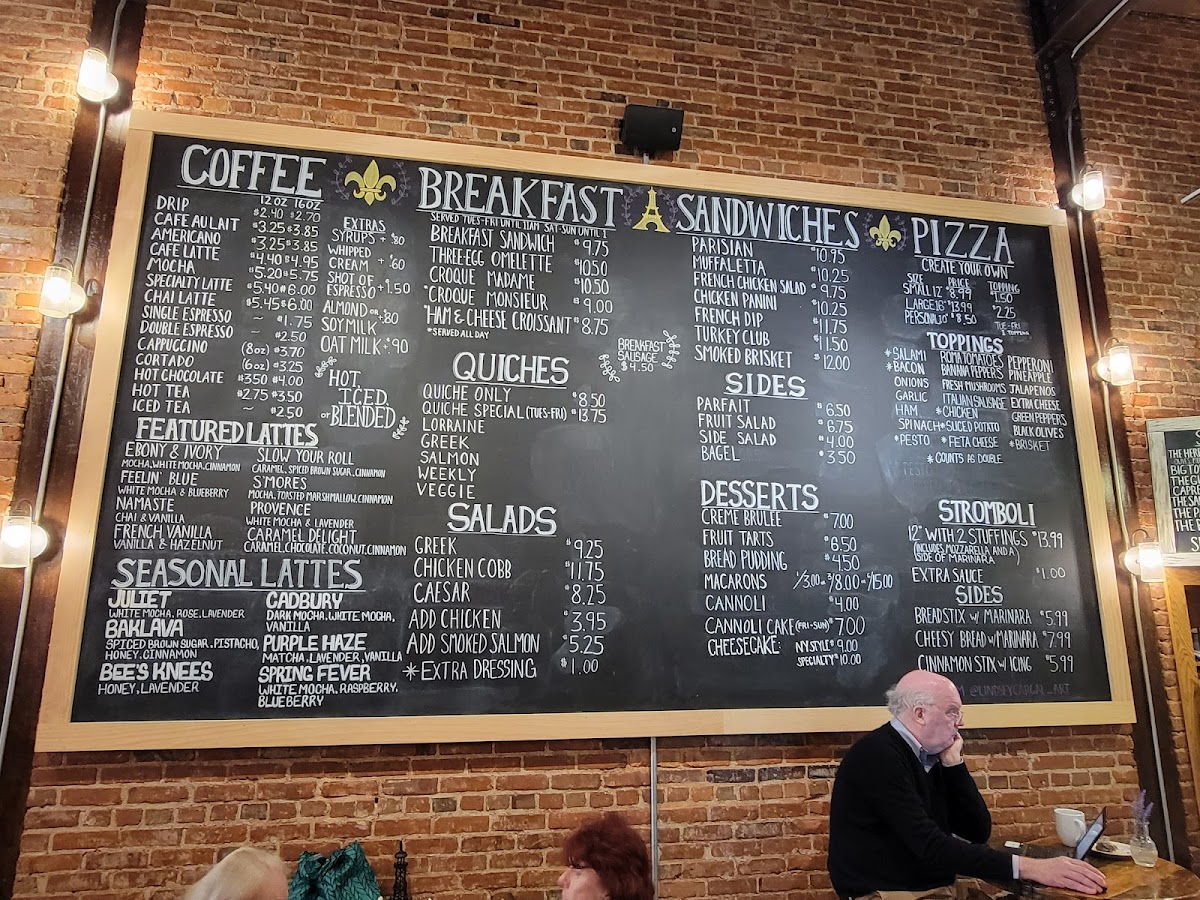 COFFEE
12 OZ 16 OZ
DRIP $2.40 $2.70
CAFE AU LAIT $3.25 $3.85
AMERICANO $3.25 $3.85
CAFE LATTE $4.40 $4.95
MOCHA $5.20 $5.75
SPECIALTY LATTE $5.40 $6.00
CHAI LATTE $5.45 $6.00
SINGLE ESPRESSO ~ $1.75
DOUBLE ESPRESSO ~ $2.50
CAPPUCCINO (8oz) $3.70
CORTADO (6oz) $3.25
HOT CHOCOLATE $3.50 $4.00
HOT TEA $2.75 $3.50
ICED TEA ~ $2.50
EXTRAS
SYRUPS + $.80
WHIPPED
CREAM + $.60
SHOT OF
ESPRESSO + $1.50
ALMOND OR + $.80
SOY MILK
OAT MILK + $.90
HOT,
ICED,
OR BLENDED
FEATURED LATTES
EBONY & IVORY
MOCHA, WHITE MOCHA, CINNAMON
FEELIN' BLUE
WHITE MOCHA & BLUEBERRY
NAMASTE
CHAI & VANILLA
FRENCH VANILLA
VANILLA & HAZELNUT
SLOW YOUR ROLL
CARAMEL, SPICED BROWN SUGAR, CINNAMON
S'MORES
MOCHA, TOASTED MARSHMALLOW, CINNAMON
PROVENCE
WHITE MOCHA & LAVENDER
CARAMEL DELIGHT
CARAMEL, CHOCOLATE, COCONUT, CINNAMON
SEASONAL LATTES
JULIET
WHITE MOCHA, ROSE, LAVENDER
BAKLAVA
SPICED BROWN SUGAR, PISTACHO,
HONEY, CINNAMON
BEE'S KNEES
HONEY, LAVENDER
CADBURY
DARK MOCHA, WHITE MOCHA,
VANILLA
PURPLE HAZE
MATCHA, LAVENDER, VANILLA
SPRING FEVER
WHITE MOCHA, RASPBERRY,
BLUEBERRY
BREAKFAST
SERVED TUES-FRI UNTIL 11AM SAT-SUN UNTIL 1
BREAKFAST SANDWICH $9.75
THREE-EGG OMELETTE $10.50
CROQUE MADAME $10.50
*CROQUE MONSIEUR $9.00
*HAM & CHEESE CROISSANT $8.75
*SERVED ALL DAY
BRENKFAST
SAUSAGE
$4.50
QUICHES
QUICHE ONLY $8.50
QUICHE SPECIAL (TUES-FRI) $13.75
LORRAINE
GREEK
SALMON
WEEKLY
VEGGIE
SALADS
GREEK $9.25
CHICKEN COBB $11.75
CAESAR $8.25
ADD CHICKEN $3.95
ADD SMOKED SALMON $5.25
*EXTRA DRESSING $1.00
SANDWICHES
PARISIAN $10.95
MUFFALETTA $10.25
FRENCH CHICKEN SALAD $9.75
CHICKEN PANINI $10.25
FRENCH DIP $11.75
TURKEY CLUB $11.50
SMOKED BRISKET $12.00
SIDES
PARFAIT $6.50
FRUIT SALAD $6.75
SIDE SALAD $4.00
BAGEL $3.50
DESSERTS
CREME BRULEE $7.00
FRUIT TARTS $6.50
BREAD PUDDING $4.50
MACARONS 1/$3.00 - 3/$8.00 - 6/$15.00
CANNOLI $4.00
CANNOLI CAKE (FRI-SUN) $7.00
CHEESECAKE: NY STYLE $9.00
SPECIALTY $10.00
PIZZA
CREATE YOUR OWN
SIZE PRICE TOPPING
SMALL 12" $8.99 1.50
LARGE 16" $13.99 $2.25
PERSONAL 10" $8.50 TUE-FRI
1 TOPPING
TOPPINGS
*SALAMI ROMA TOMATOES PEPPERONI
*BACON BANANA PEPPERS PINEAPPLE
ONIONS FRESH MUSHROOMS JALAPENOS
GARLIC ITALIAN SAUSAGE EXTRA CHEESE
HAM *CHICKEN GREEN PEPPERS
SPINACH *SLICED POTATO BLACK OLIVES
*PESTO *FETA CHEESE *BRISKET
*COUNTS AS DOUBLE
STROMBOLI
12" WITH 2 STUFFINGS $13.99
(INCLUDES MOZZARELLA AND A)
SIDE OF MARINARA)
EXTRA SAUCE $1.00
SIDES
BREADSTIX W/ MARINARA $5.99
CHEESY BREAD W/ MARINARA $7.99
CINNAMON STIX W/ ICING $5.99